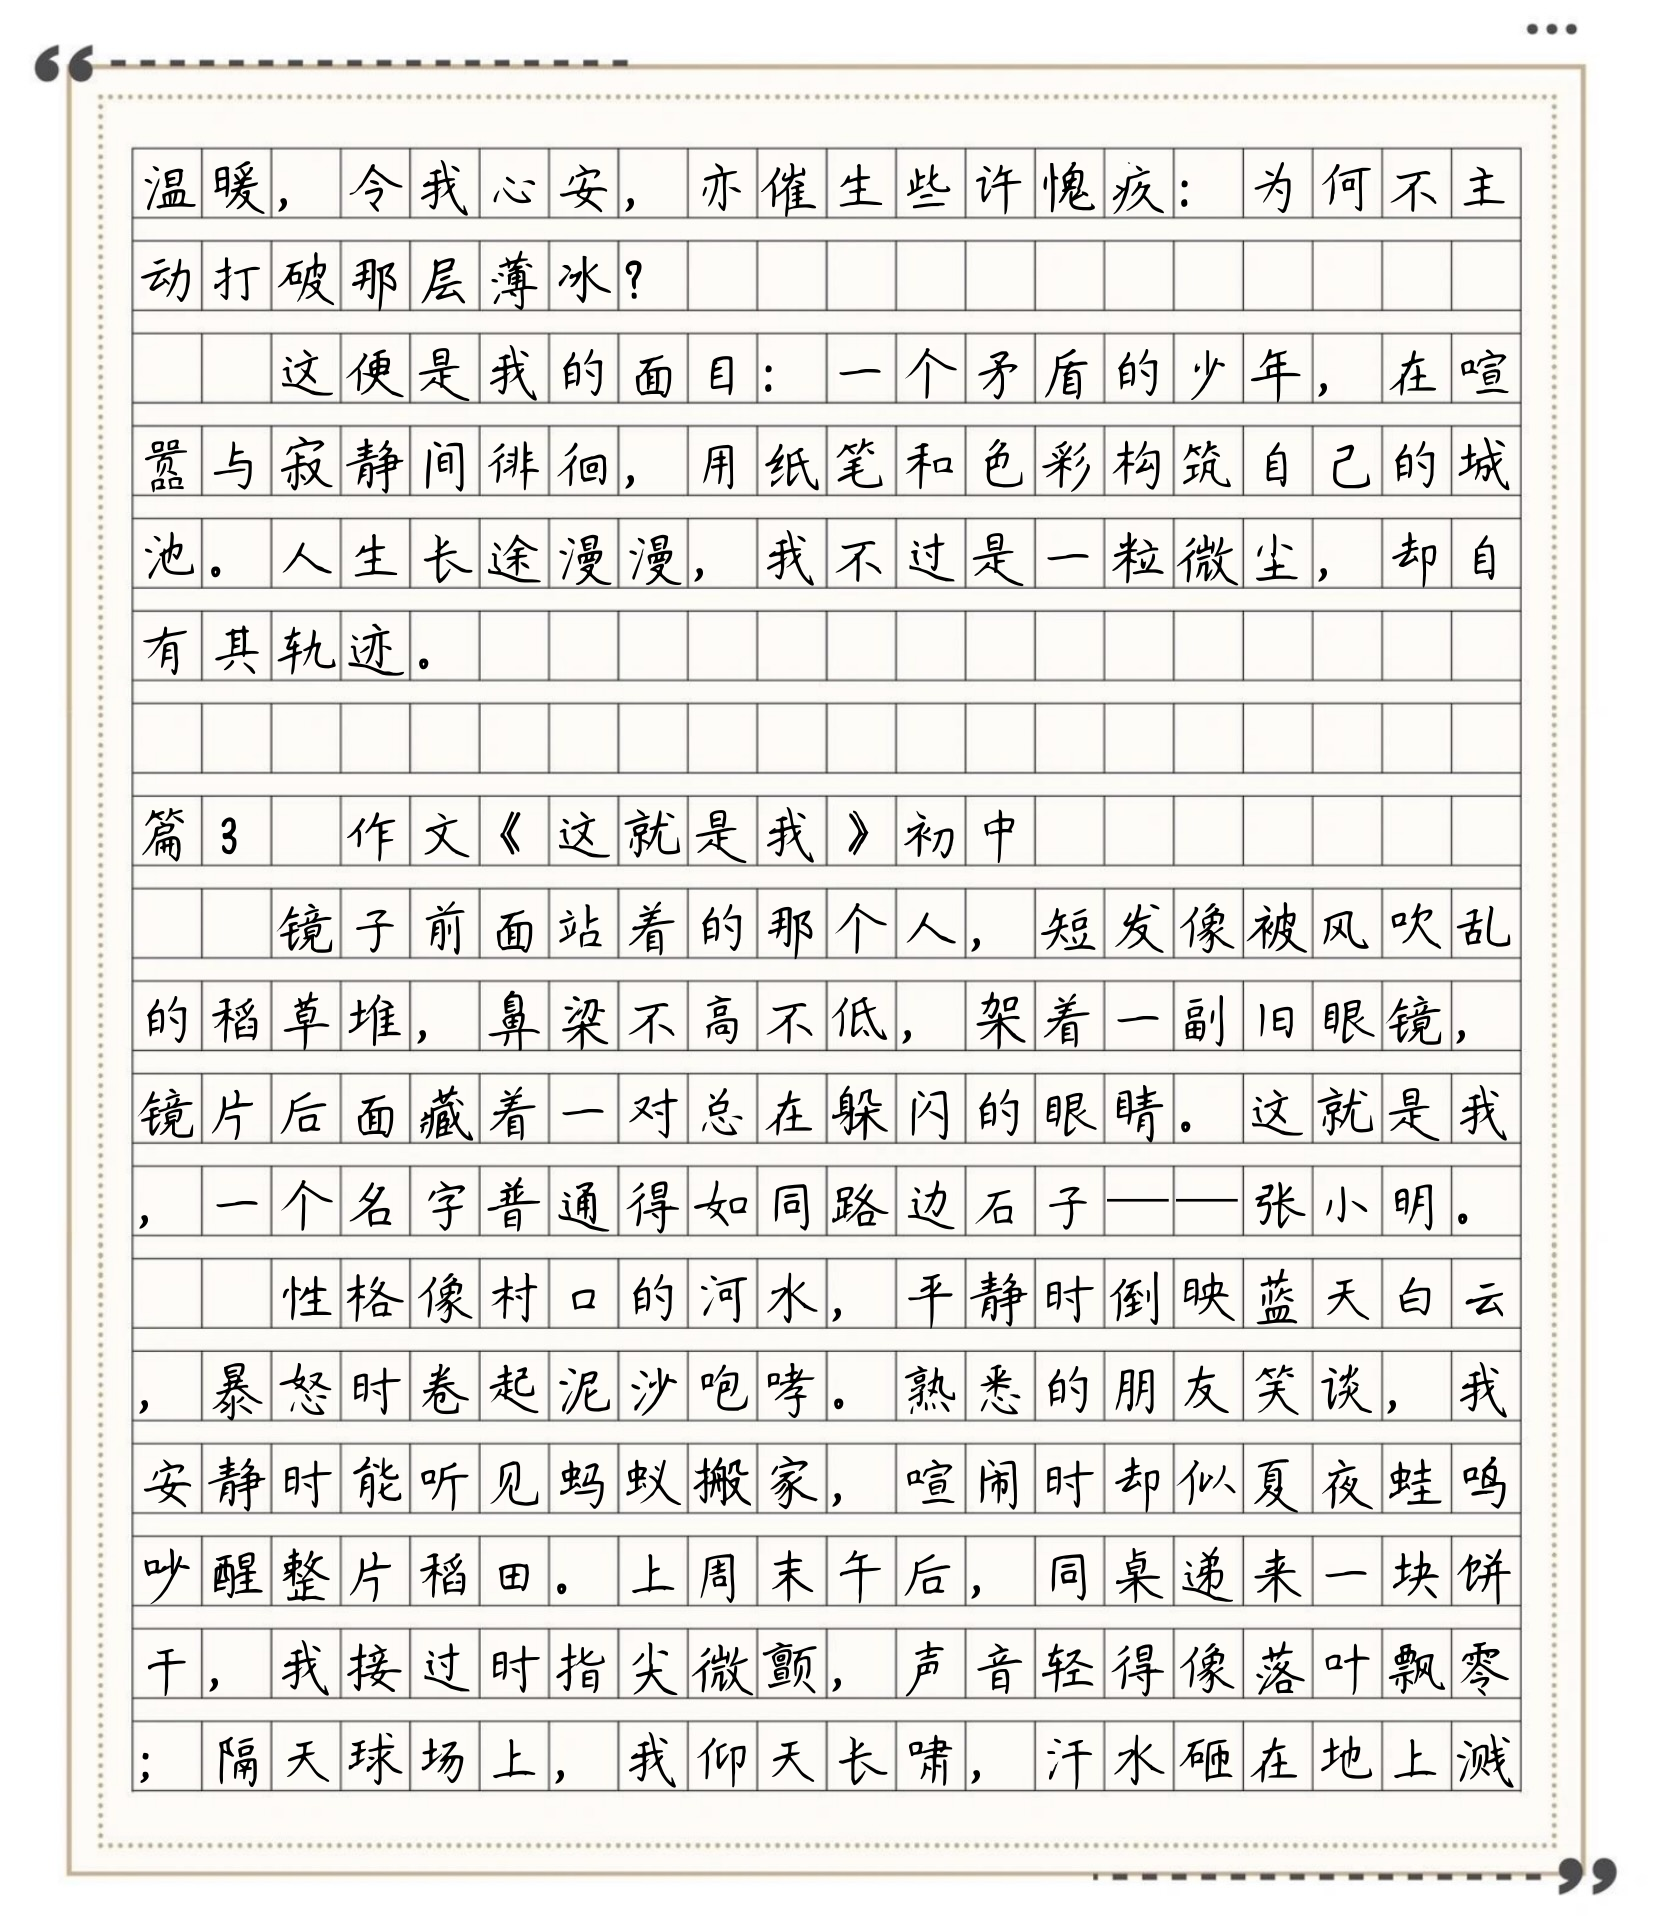 温暖，令我心安，亦催生些许愧疚：为何不主
动打破那层薄冰？
这便是我的面目：一个矛盾的少年，在喧
嚣与寂静间徘徊，用纸笔和色彩构筑自己的城
池。人生长途漫漫，我不过是一粒微尘，却自
有其轨迹。
篇3 作文《这就是我》初中
镜子前面站着的那个人，短发像被风吹乱
的稻草堆，鼻梁不高不低，架着一副旧眼镜，
镜片后面藏着一对总在躲闪的眼睛。这就是我
，一个名字普通得如同路边石子——张小明。
性格像村口的河水，平静时倒映蓝天白云
，暴怒时卷起泥沙咆哮。熟悉的朋友笑谈，我
安静时能听见蚂蚁搬家，喧闹时却似夏夜蛙鸣
吵醒整片稻田。上周末午后，同桌递来一块饼
干，我接过时指尖微颤，声音轻得像落叶飘零
；隔天球场上，我仰天长啸，汗水砸在地上溅